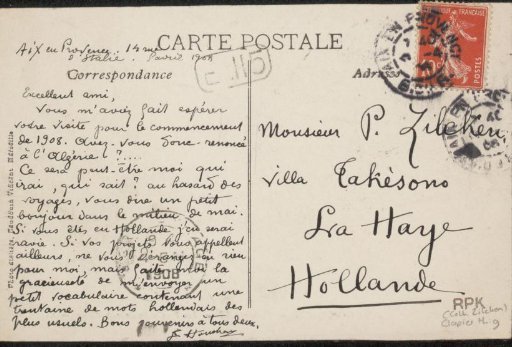 Aix en Provence, 14 rue
d'Italie. 2 avril 1908
CARTE POSTALE
Correspondance
Adresse
Excellent ami,
Vous m'aviez fait espérer
votre visite pour le commencement
de 1908. Avez-vous donc renoncé
à l'Algérie ? ....
Ce sera peut-être moi qui
irai, qui sait ? au hasard des
voyages, vous dire un petit
bonjour dans le milieu de mai.
Si vous êtes en Hollande j'en serai
ravie. Si vos projets vous appellent
ailleurs, ne vous dérangez en rien
pour moi, mais faites moi la
gracieuseté de m'envoyer un
petit vocabulaire contenant une
trentaine de mots hollandais des
plus usuels. Bons souvenirs à tous deux.
Monsieur P. Zilcken
Villa Takésono
La Haye
Hollande
1908
POSTES
RPK
(Coll. Zilcken)